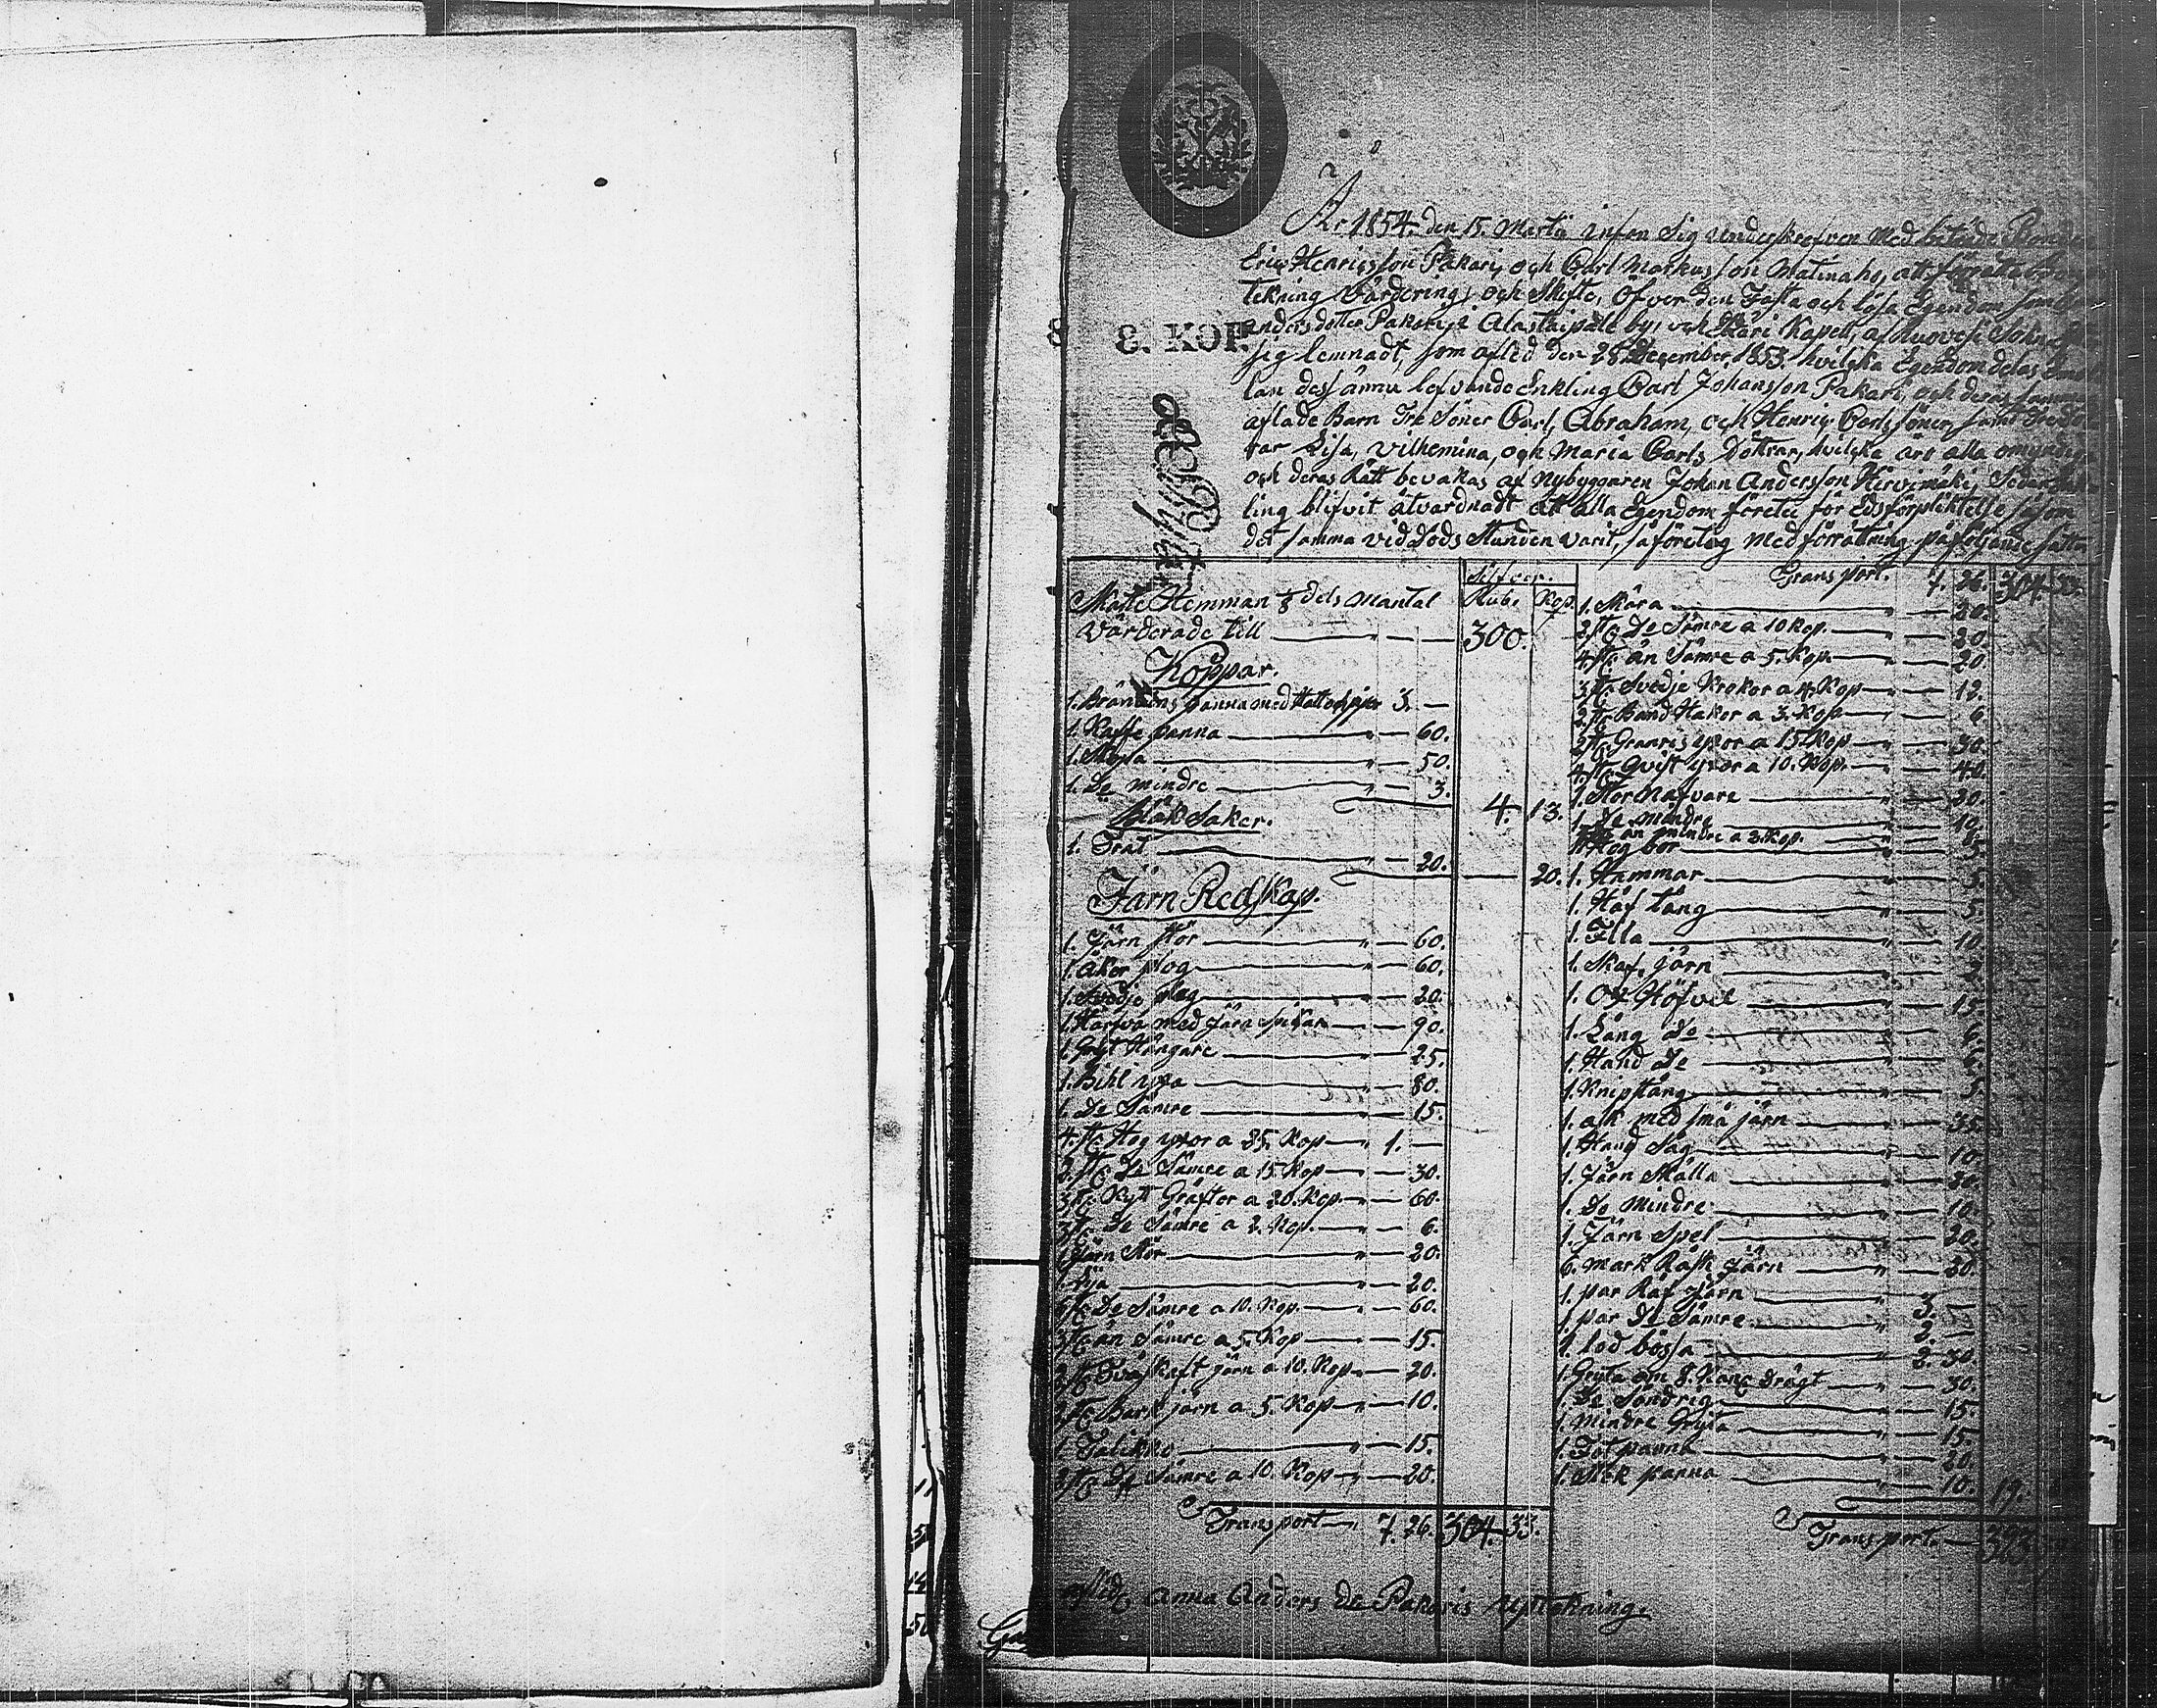 År 1854. den 15. Martii infan Sig underskrefven Med biträde Bonden
Eric Henricsson Pakari, och Carl Markusson Matinaho, att förrätta
tekning Värdering, och Skifte, öfver den Fasta och lösa Egendom som
Andersdotter Pakari i Alastaipale by, och Kapell, af Ruovesi Sokn
sig lemnadt, som afled den 28 December 1853. hvilka Egendom delas Emel
lan dess ännu lefvande Enkling Carl Johansson Pakari, och deras samman
aflade Barn Tre Söner Carl, Abraham, och Henric Carlssöner, samt Tre Dött
rar Lisa, Vilhemina, och Maria Carls Döttrar, hvilka äro alla omyndiga
och deras Rätt bevakas af Nybyggaren Johan Andersson Hirvimäki, Sedan Enk
ling blifvit åtvardnadt att alla Egendom förete för Edsförpliktelse såsom
det samma vid Döds Stunden varit, så företog med förrättning påföljande sätt
8. KOP.
Silfver.
Rub. Kop.
Skatte Hemman 1/8 dels Mantal
Värderade till — 300.
Koppar.
1. Bränvins panna med Hatt och pipor 3. —
1. Kaffe panna — 60.
1. Skopa — 50.
1. De mindre — 3.
4. 13.
Bläk Saker.
1. Trat — 20.
20.
Järn Redskap.
1. Järn stör — 60.
1. åker plog — 60.
1. Svedje plog — 20.
1. Harfva med Järn spikar — 90.
1. Gryt Hängare — 25.
1. Bihl yxa — 80.
1. De Sämre — 15.
4. st. Hog yxor a 25. Kop — 1. —
2. st. De Sämre a 15. Kop — 30.
3. st. Kytt Gräftor a 20. Kop. — 60.
3. st. De Sämre a 2. Kop. — 6.
1. Järn Stör — 20.
1. Lija — 20.
6. st. De Sämre a 10. Kop. — 60.
3. st. än Sämre a 5. Kop — 15.
2. st. Tväskaft järn a 10. Kop — 20.
2. st. Bark järn a 5. Kop — 10.
1. Talikko — 15.
2. st. De Sämre a 10. Kop — 20.
Transport — 7. 26. 304. 33.
Transport. 7. 26. 304. 33.
1. Skära — 20.
2. st. De Sämre a 10 Kop. — 20.
4. st. än Sämre a 5. Kop. — 20.
3. st. Svedje Krokar a 4. Kop — 12.
2. st. Band Hakor a 3. Kop — 6
2. st. Granris yxor a 15. Kop — 30.
4. st. Qvist yxor a 10. Kop. — 40.
1. Stor Nafvare — 30.
1. De mindre — 10.
än mindre a 3. Kop. — 6.
1. Hog bör — 5.
1. Hammar — 5.
1. Håf tång — 5.
1. Filla — 10
1. Skaf järn — 2.
1. Ox Höfvel — 15.
1. Lång De — 6.
1. Hand De — 6.
1. Kniptång — 5.
1. ask med små järn — 35.
1. Hand Såg — 10.
1. Järn Skålla — 30.
1. De Mindre — 10.
1. Järn Spel — 20.
6. mark Råsk Järn — 30.
1. par Räf Järn — 3. —
1. par De Sämre — 2. —
1. lod bössa — 2. 30.
1. Gryta om 8. Kanr Drägt — 30.
1. De Söndrig — 15.
1. Mindre Gryta — 15.
1. Fot panna — 20.
1. Stek panna — 10.
19.
Transport. — 323.
aflidr Anna Anders Dr Pakaris Uptekning.